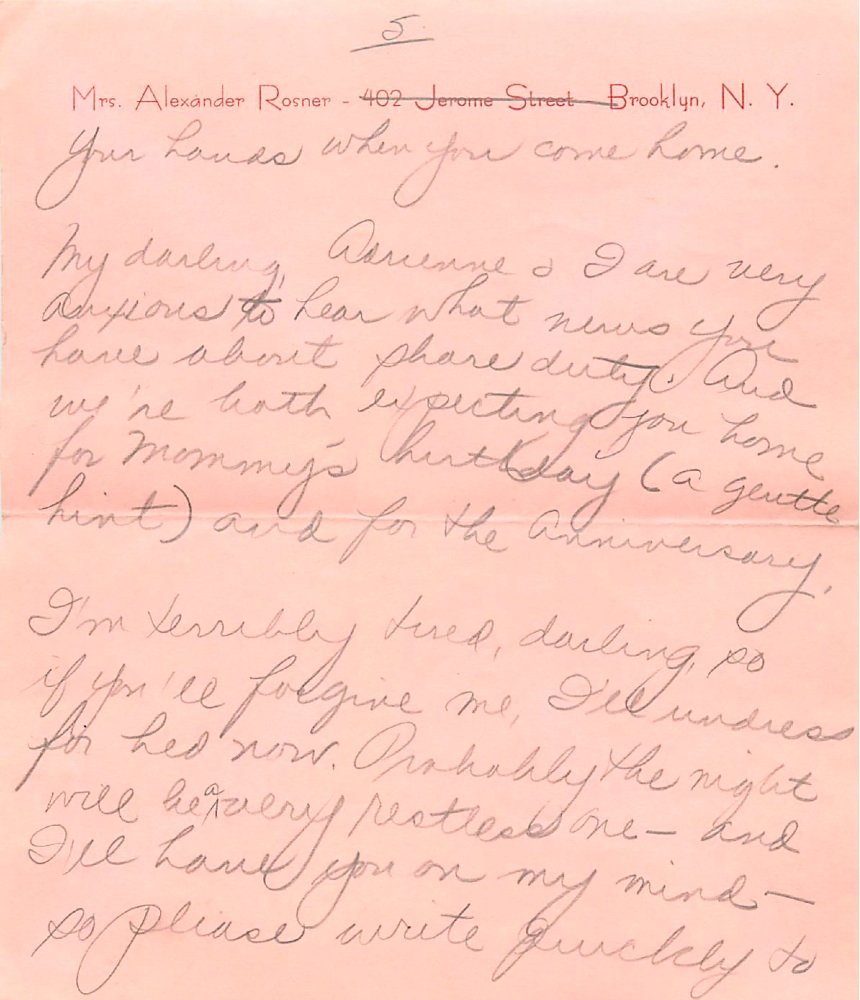 5
Mrs. Alexander Rosner - 402 Jerome Street Brooklyn, N. Y.
your hands when you come home.
My darling, Adrienne & I are very
anxious to hear what news you
have about share duty. And
we're both expecting you home
for Mommy's birthday (a gentle
hint) and for the anniversary.
I'm terribly tired, darling, so
if you'll forgive me, I'll undress
for bed now. Probably the night
will be a very restless one — and
I'll have you on my mind —
so please write quickly to